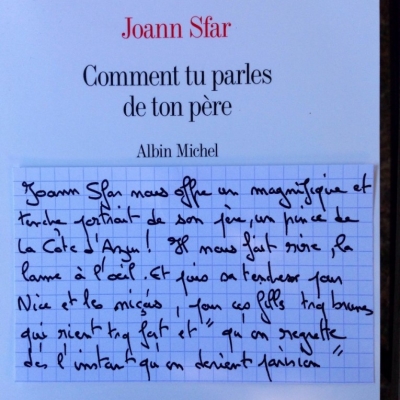 Joann Sfar
Comment tu parles
de ton père
Albin Michel
Joann Sfar nous offre un magnifique et
tendre portrait de son père, un prince de
la Côte d'Azur ! Il nous fait rire, la
larme à l'œil. Et puis sa tendresse pour
Nice et les niçois, pour ces filles trop brunes
qui rient trop fort et "qu'on regrette
dès l'instant qu'on devient parisien"